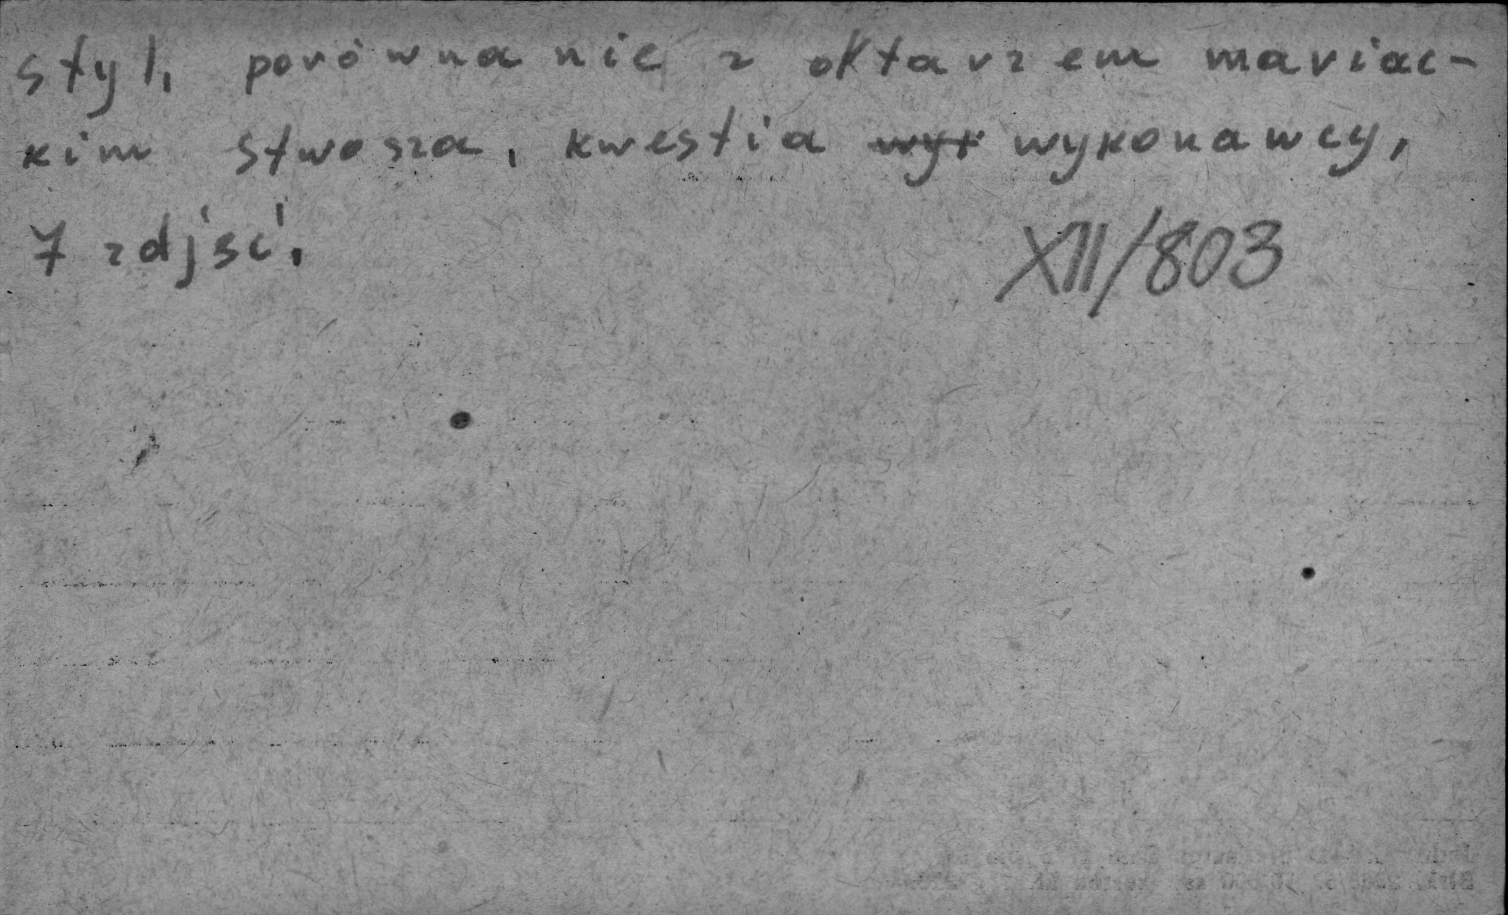 styl, porównanie z ołtarzem mariac-
kim Stwosza, kwestia ~~wyk~~ wykonawcy,
7 zdjęć.
XII/803